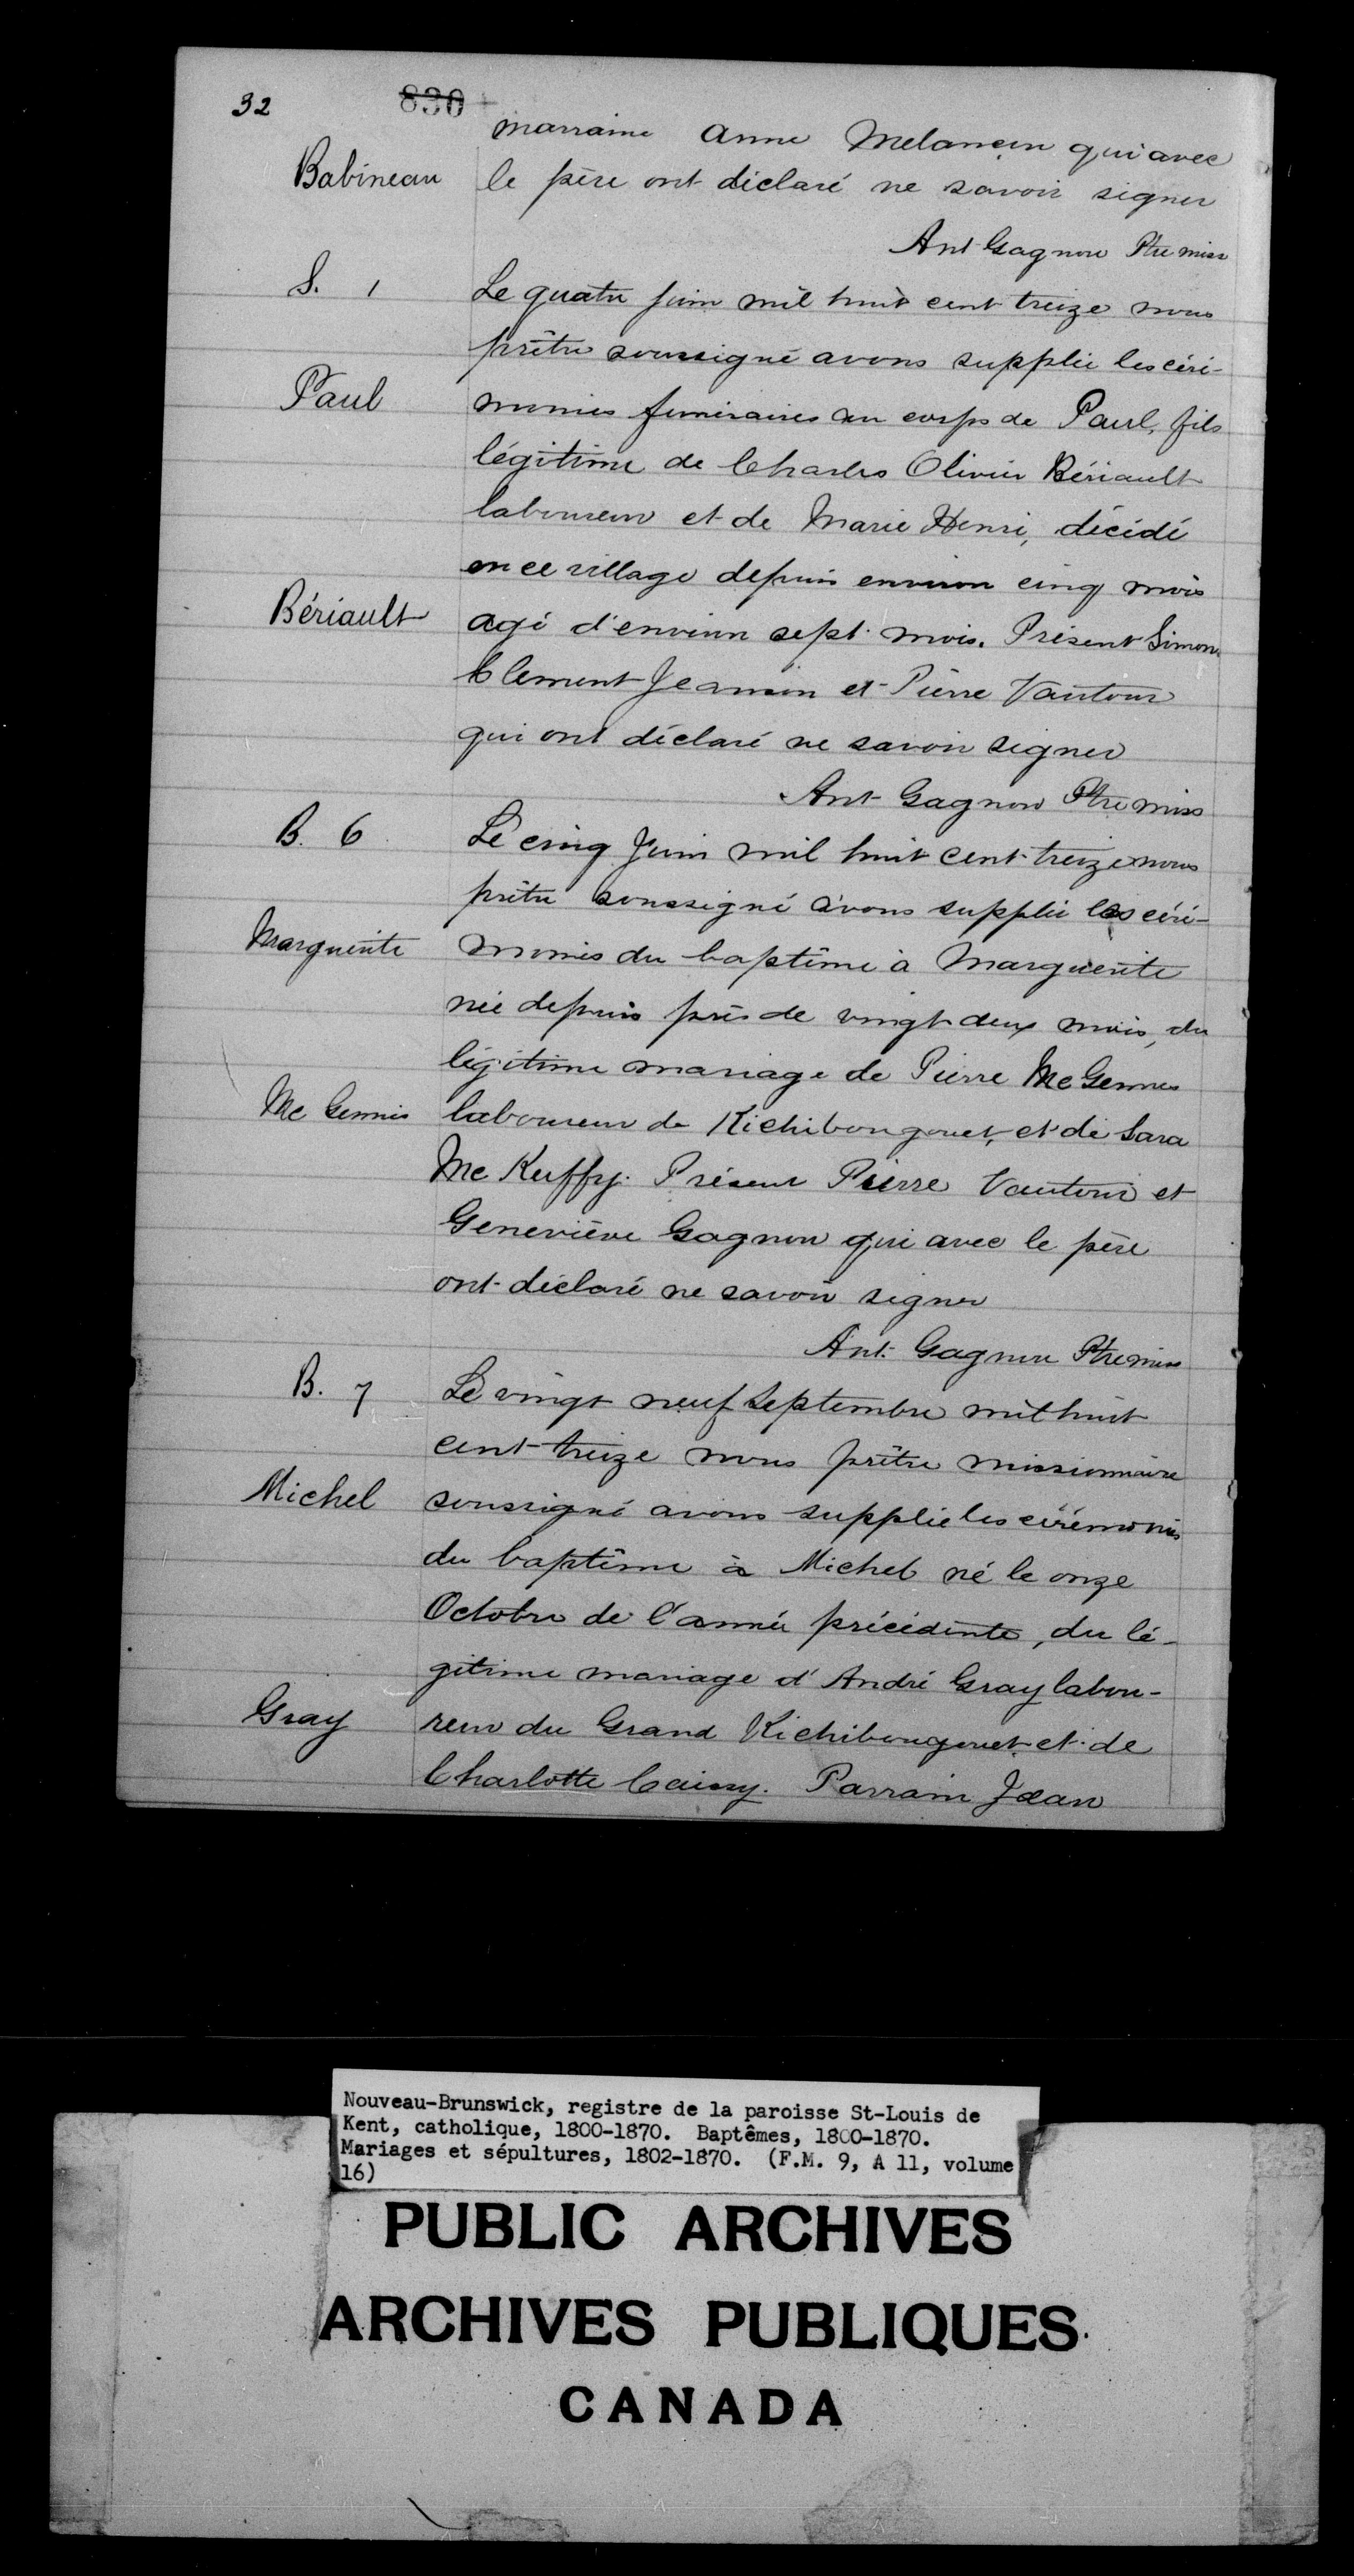 32
830
marraine Anne Melançon qui avec
Babineau
le père ont déclaré ne savoir signer
Ant Gagnon Ptre miss
S. 1
Le quatre juin mil huit cent treize nous
prêtre soussigné avons supplée les céré-
Paul
monies funéraires au corps de Paul, fils
légitime de Charles Olivier Bériault
laboureur et de Marie Henri, décédé
en ce village depuis environ cinq mois
Bériault
agé d'environ sept mois. Présent Simon
Clement Jeanson et Pierre Vautour
qui ont déclaré ne savoir signer
Ant Gagnon Ptre miss
B. 6
Le cinq Juin mil huit cent treize nous
prêtre soussigné avons supplée les céré-
Marguerite
monies du baptême à Marguerite
née depuis près de vingt deux mois, du
légitime mariage de Pierre McGennes
Mc Gennis
laboureur de Richibougouet, et de Sara
Mc Kuffy. Présent Pierre Vautour et
Geneviève Gagnon qui avec le père
ont déclaré ne savoir signer
Ant. Gagnon Ptre miss
B. 7
Le vingt neuf Septembre mil huit
cent treize nous prêtre missionnaire
Michel
soussigné avons supplée les cérémonies
du baptême à Michel né le onze
Octobre de l'année précédente, du lé-
gitime mariage d'André Gray labou-
Gray
reur du Grand Richibougouet et de
Charlotte Caissy. Parrain Jean
Nouveau-Brunswick, registre de la paroisse St-Louis de
Kent, catholique, 1800-1870. Baptêmes, 1800-1870.
Mariages et sépultures, 1802-1870. (F.M. 9, A 11, volume
16)
PUBLIC ARCHIVES
ARCHIVES PUBLIQUES
CANADA